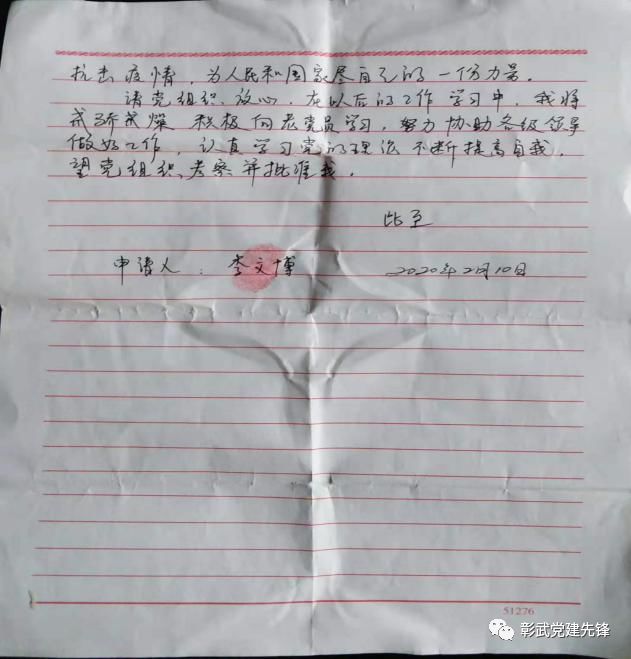 抗击疫情，为人民和国家尽自己的一份力量。
请党组织放心，在以后的工作学习中，我将
戒骄戒燥 积极向老党员学习，努力协助各级领导
做好工作，认真学习党的理论 不断提高自我，
望党组织考察并批准我。
此至
申请人：李文博 2020年2月10日
51276
彰武党建先锋